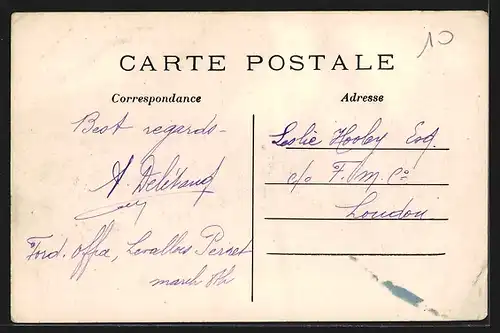 10
CARTE POSTALE
Correspondance
Adresse
Best regards -
Leslie Hooley Esq.
c/o F. M. Co
London
Ford. Offa, Levallois Perret
march 8th